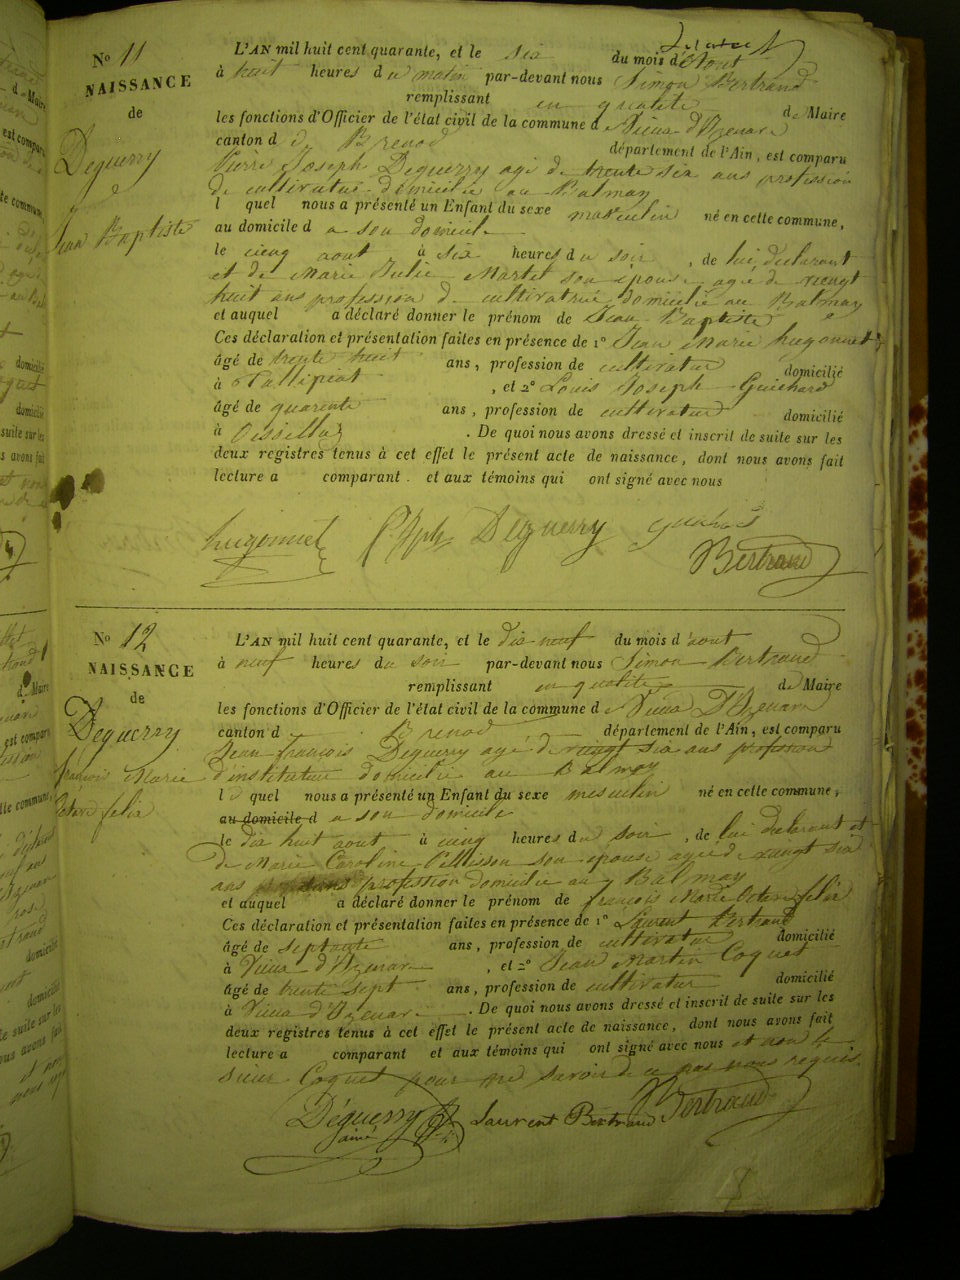 N° 11
NAISSANCE
de
Deguerry
Jean Baptiste
L'AN mil huit cent quarante, et le six du mois d'Aout
à huit heures du matin par-devant nous Simon Bertrand
remplissant en qualité de Maire
les fonctions d'Officier de l'état civil de la commune de Vieux d'Izenave
canton d Brenod département de l'Ain, est comparu
Pierre Joseph Deguerry agé de trente six ans profession
de cultivateur domicilié au Balmay
l quel nous a présenté un Enfant du sexe masculin né en cette commune,
au domicile d a son domicile
le cinq aout à six heures du soir, de lui déclarant
et de Marie Julie Martet son épouse agé de vingt
huit ans profession de cultivatrice domicilié au Balmay
et auquel a déclaré donner le prénom de Jean Baptiste
Ces déclaration et présentation faites en présence de 1° Jean Marie hugonnet
âgé de trente huit ans, profession de cultivateur domicilié
à, et 2° Louis Joseph Guichard
âgé de quarente ans, profession de cultivateur domicilié
à Oisselaz. De quoi nous avons dressé et inscrit de suite sur les
deux registres tenus à cet effet le présent acte de naissance, dont nous avons fait
lecture a comparant. et aux témoins qui ont signé avec nous
hugonnet Deguerry Guichard
Bertrand
N° 12
NAISSANCE
de
Deguerry
françois Marie
Octave felix
L'AN mil huit cent quarante, et le dix neuf du mois d'aout
à neuf heures du soir par-devant nous Simon Bertrand
remplissant en qualité de Maire
les fonctions d'Officier de l'état civil de la commune de Vieux D'Izenave
canton d Brenod département de l'Ain, est comparu
Jean françois Deguerry agé de vingt six ans profession
d'instituteur domicilié au Balmay
l quel nous a présenté un Enfant du sexe masculin né en cette commune,
au domicile d a son domicile
le dix huit aout à cinq heures du soir, de lui déclarant et
de Marie Caroline Pellisson son épouse agé de vingt six
ans profession domicilié au Balmay
et auquel a déclaré donner le prénom de françois Marie Octave felix
Ces déclaration et présentation faites en présence de 1° Laurent Bertrand
âgé de septante ans, profession de cultivateur domicilié
à Vieux d'Izenave, et 2° Jean Martin Coquet
âgé de trente sept ans, profession de cultivateur domicilié
à Vieux d'Izenave. De quoi nous avons dressé et inscrit de suite sur les
deux registres tenus à cet effet le présent acte de naissance, dont nous avons fait
lecture a comparant et aux témoins qui ont signé avec nous et non le
sieur Coquet pour ne savoir de ce par nous requis.
Déguerry Laurent Bertrand Bertrand
ainé